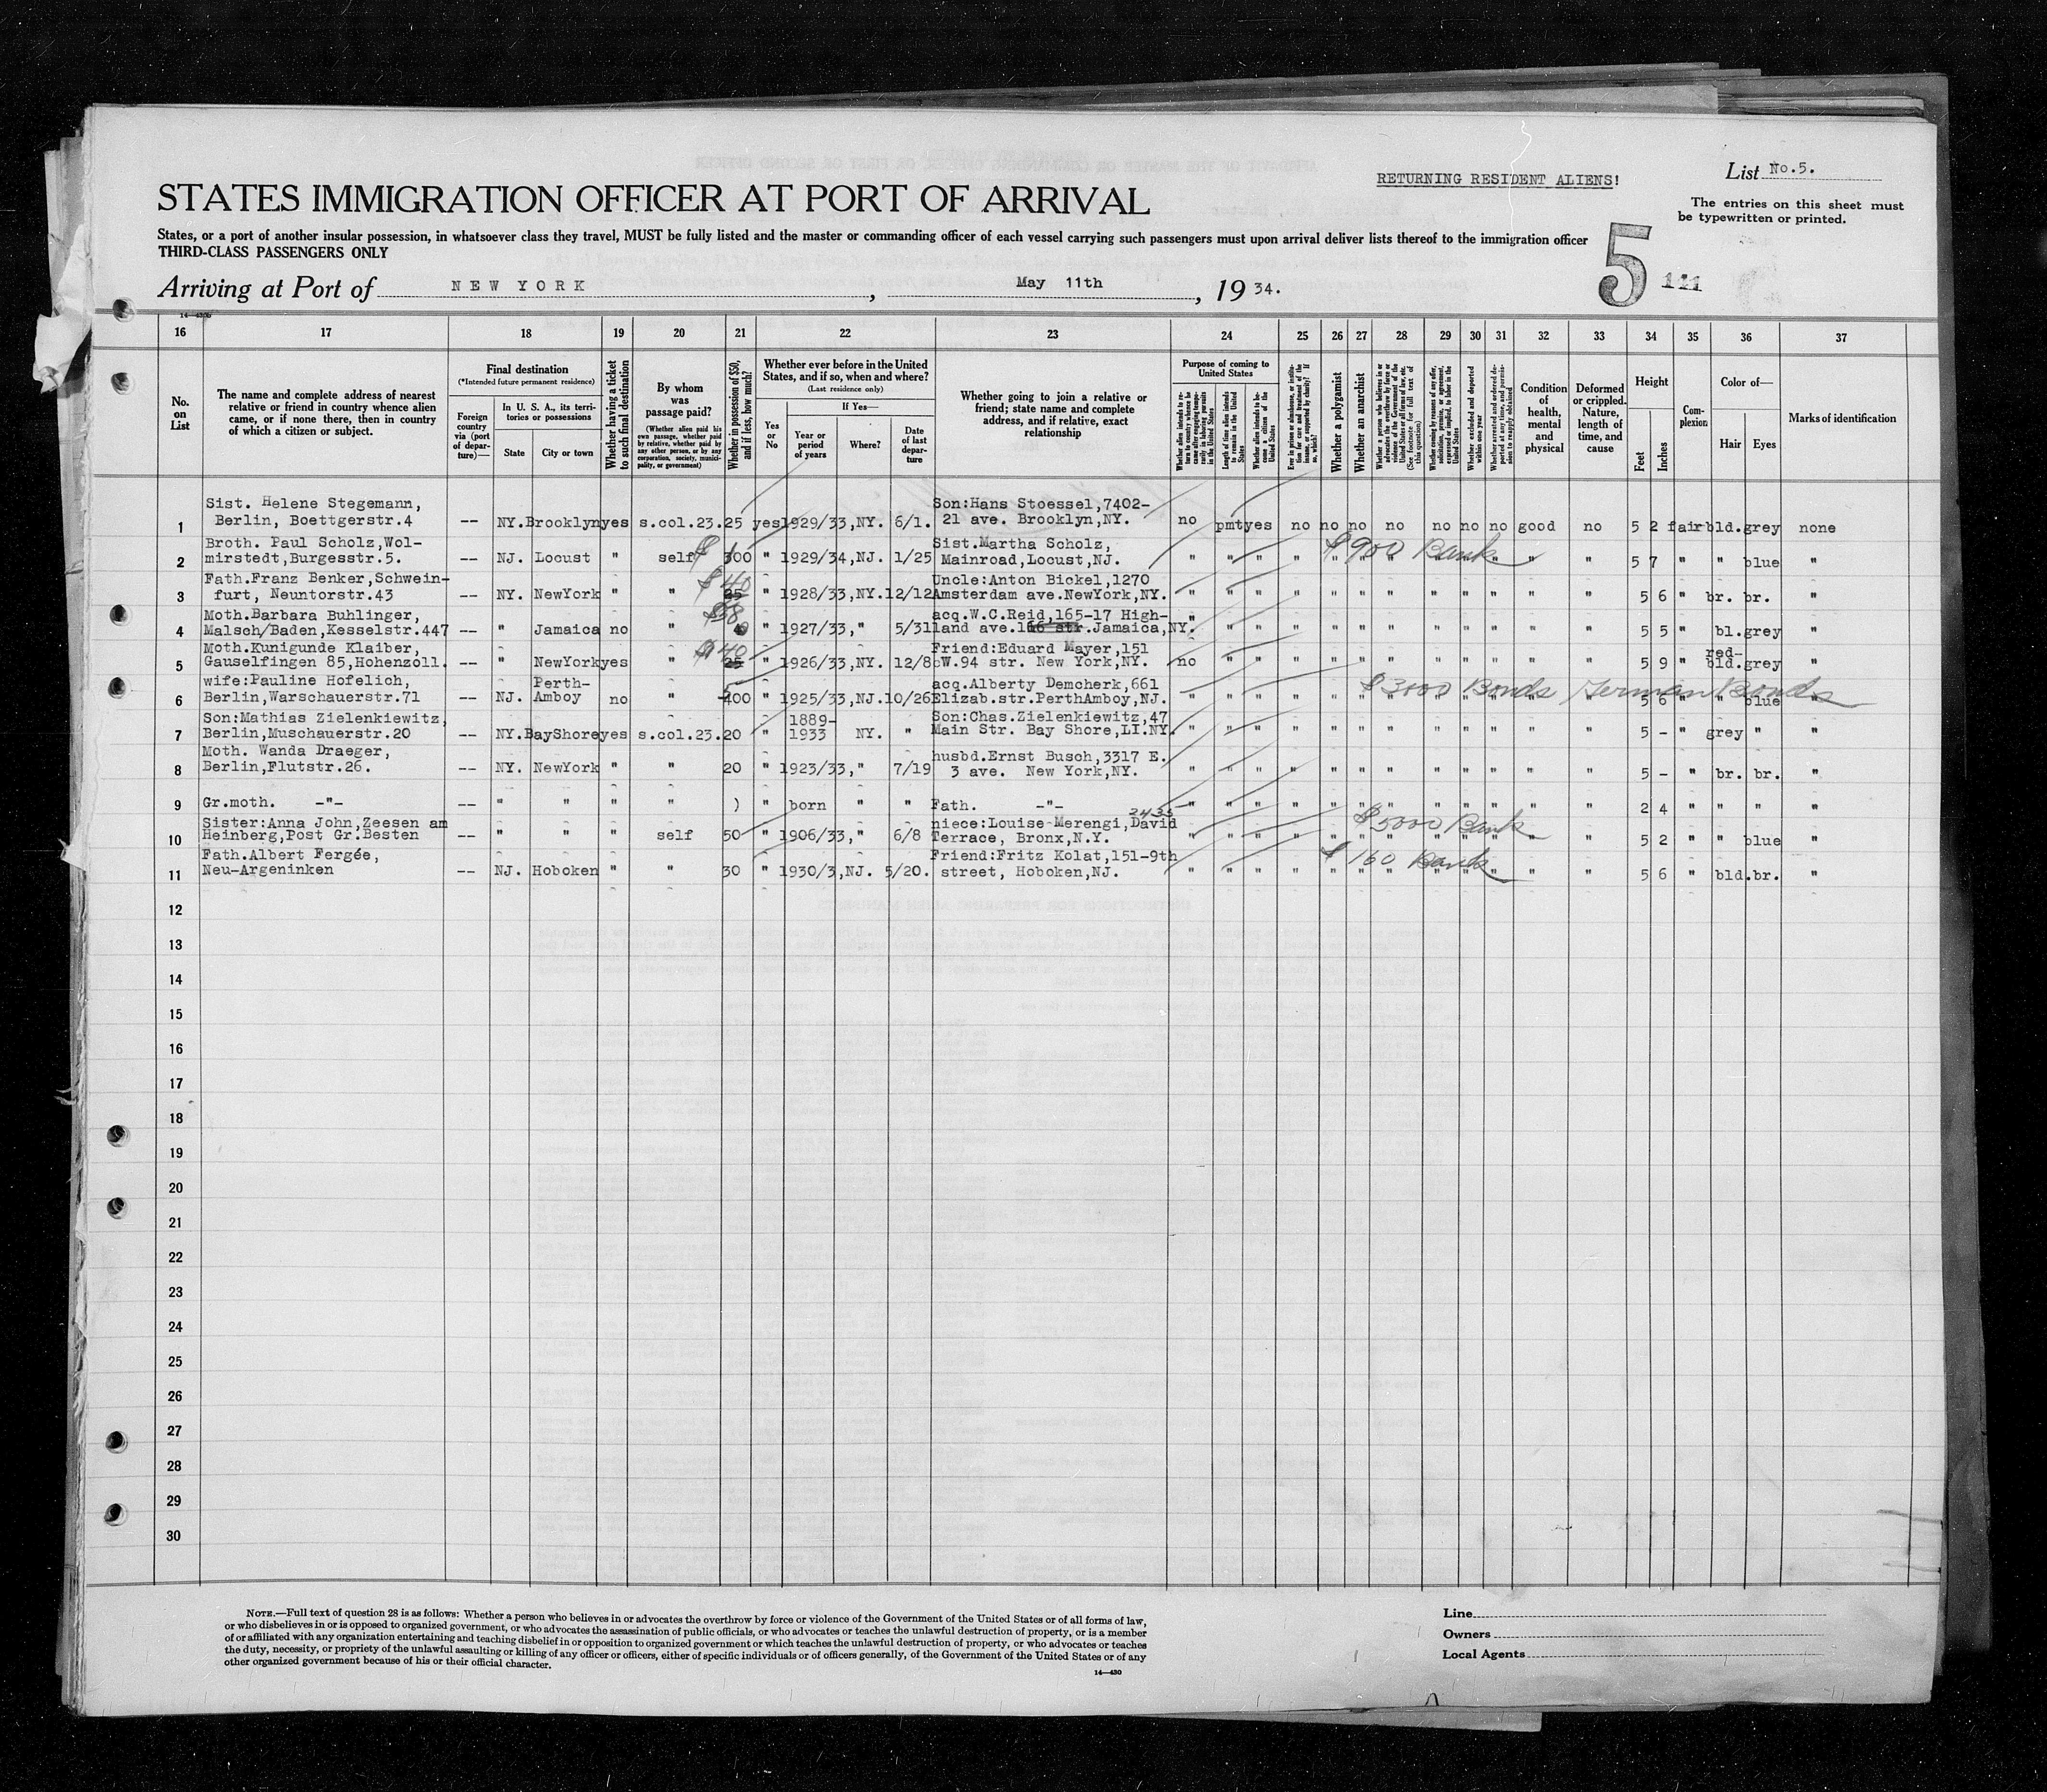 RETURNING RESIDENT ALIENS!
List No.5.
STATES IMMIGRATION OFFICER AT PORT OF ARRIVAL
The entries on this sheet must
be typewritten or printed.
States, or a port of another insular possession, in whatsoever class they travel, MUST be fully listed and the master or commanding officer of each vessel carrying such passengers must upon arrival deliver lists thereof to the immigration officer
THIRD-CLASS PASSENGERS ONLY
5 111
Arriving at Port of NEW YORK, May 11th, 1934.
16 17 18 19 20 21 22 23 24 25 26 27 28 29 30 31 32 33 34 35 36 37
No. on List
The name and complete address of nearest
relative or friend in country whence alien
came, or if none there, then in country
of which a citizen or subject.
Final destination
(*Intended future permanent residence)
Foreign country via (port of departure)—
In U. S. A., its territories or possessions
State
City or town
Whether having a ticket to such final destination
By whom was passage paid?
(Whether alien paid his own passage, whether paid by relative, whether paid by any other person, or by any corporation, society, municipality, or government)
Whether in possession of $50, and if less, how much?
Whether ever before in the United States, and if so, when and where?
(Last residence only)
Yes or No
If Yes—
Year or period of years
Where?
Date of last departure
Whether going to join a relative or
friend; state name and complete
address, and if relative, exact
relationship
Purpose of coming to United States
Length of time alien intends to remain in the United States
Whether alien intends to become a citizen of the United States
Whether a polygamist
Whether an anarchist
Condition of health, mental and physical
Deformed or crippled. Nature, length of time, and cause
Height
Feet
Inches
Complexion
Color of—
Hair
Eyes
Marks of identification
Sist. Helene Stegemann, Son:Hans Stoessel,7402-
1 Berlin, Boettgerstr.4 -- NY. Brooklyn yes s.col.23. 25 yes 1929/33,NY. 6/1. 21 ave. Brooklyn,NY. no pmt yes no no no no no no no good no 5 2 fair bld. grey none
Broth. Paul Scholz,Wol- $ Sist.Martha Scholz, $900 Bank
2 mirstedt,Burgesstr.5. -- NJ. Locust " self 300 " 1929/34,NJ. 1/25 Mainroad,Locust,NJ. " " " " " " " " " " " " 5 7 " " blue "
Father.Franz Benker,Schwein- $40 Uncle:Anton Bickel,1270
3 furt, Neuntorstr.43 -- NY. NewYork " " 25 " 1928/33,NY. 12/12 Amsterdam ave.NewYork,NY. " " " " " " " " " " " " 5 6 " br. br. "
Moth.Barbara Buhlinger, $38 acq.W.C.Reid,165-17 High-
4 Malsch/Baden,Kesselstr.447 -- " Jamaica no " " 1927/33," 5/31 land ave. Jamaica,NY. " " " " " " " " " " " 5 5 " bl. grey "
Moth.Kunigunde Klaiber, $40 Friend:Eduard Mayer,151 red-
5 Gauselfingen 85,Hohenzoll. -- " NewYork yes " 25 " 1926/33,NY. 12/8 W.94 str. New York,NY. no " " " " " " " " " " " 5 9 " bld. grey "
wife:Pauline Hofelich, Perth- acq.Alberty Demcherk,661 $3000 Bonds German Bonds
6 Berlin,Warschauerstr.71 -- NJ. Amboy no " 400 " 1925/33,NJ. 10/26 Elizab.str.PerthAmboy,NJ. " " " " " " " " " " " " 5 6 " " blue "
Son:Mathias Zielenkiewitz, 1889- Son:Chas.Zielenkiewitz,47
7 Berlin,Muschauerstr.20 -- NY. BayShore yes s.col.23. 20 " 1933 NY. " Main Str. Bay Shore,LI.NY. " " " " " " " " " " " " 5 - " grey " "
Moth. Wanda Draeger, husbd.Ernst Busch,3317 E.
8 Berlin,Flutstr.26. -- NY. NewYork " " 20 " 1923/33," 7/19 3 ave. New York,NY. " " " " " " " " " " " " 5 - " br. br. "
9 Gr.moth. -"- -- " " " " ) " born " " Fath. -"- " " " " " " " " " " " " 2 4 " " " "
2435
Sister:Anna John,Zeesen am niece:Louise Merengi,David $5000 Bank
10 Heinberg,Post Gr.Besten -- " " " self 50 " 1906/33," 6/8 Terrace, Bronx,N.Y. " " " " " " " " " " " " 5 2 " " blue "
Fath.Albert Fergée, Friend:Fritz Kolat,151-9th $160 Bank
11 Neu-Argeninken -- NJ. Hoboken " " 30 " 1930/3,NJ. 5/20. street, Hoboken,NJ. " " " " " " " " " " " " 5 6 " bld. br. "
12
13
14
15
16
17
18
19
20
21
22
23
24
25
26
27
28
29
30
NOTE.—Full text of question 28 is as follows: Whether a person who believes in or advocates the overthrow by force or violence of the Government of the United States or of all forms of law,
or who disbelieves in or is opposed to organized government, or who advocates the assassination of public officials, or who advocates or teaches the unlawful destruction of property, or is a member
of or affiliated with any organization entertaining and teaching disbelief in or opposition to organized government or which teaches the unlawful destruction of property, or who advocates or teaches
the duty, necessity, or propriety of the unlawful assaulting or killing of any officer or officers, either of specific individuals or of officers generally, of the Government of the United States or of any
other organized government because of his or their official character.
14—430
Line
Owners
Local Agents